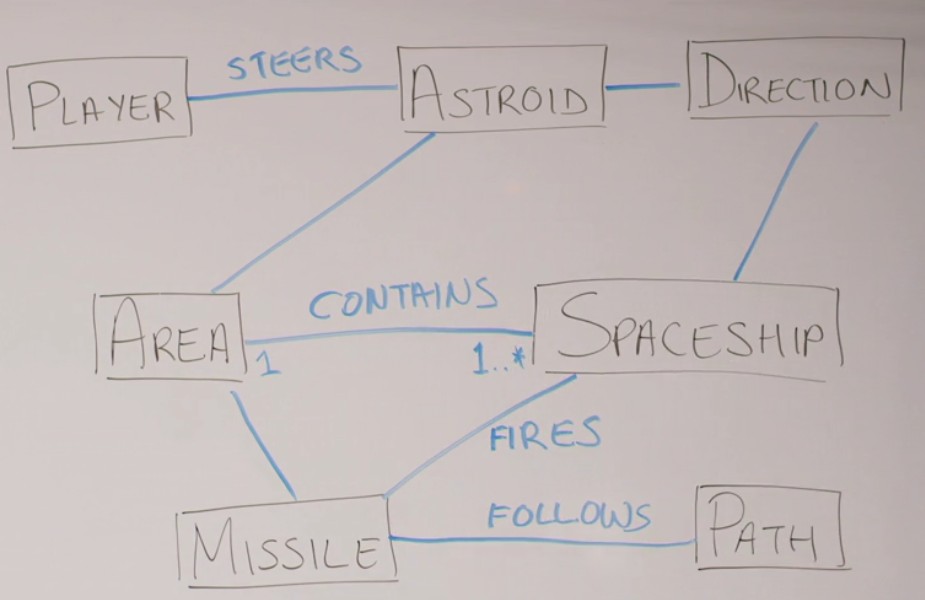 PLAYER
STEERS
ASTROID
DIRECTION
AREA
CONTAINS
1
1..*
SPACESHIP
FIRES
MISSILE
FOLLOWS
PATH